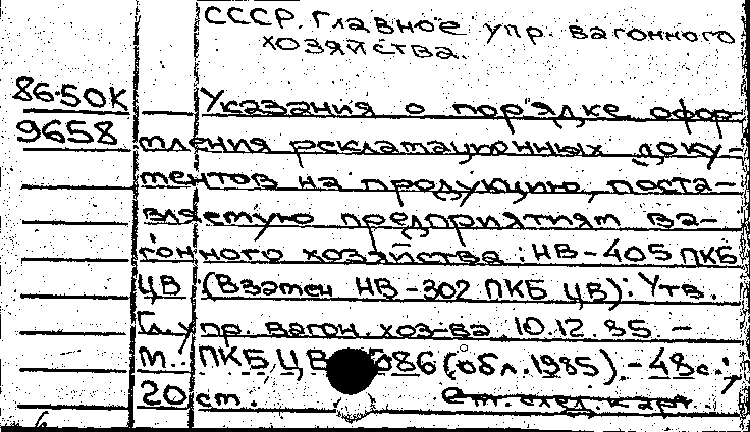 СССР. Главное упр. вагонного
хозяйства.
86-50К Указания о порядке офор-
9658 мления рекламационных доку-
ментов на продукцию, поста-
вляемую предприятиям ва-
гонного хозяйства: НВ-405 ПКБ
ЦВ (Взамен НВ-302 ПКБ ЦВ): Утв.
Гл. упр. вагон. хоз-ва 10.12.85. -
М.: ПКБ ЦВ 1986 (обл. 1985). - 48с.;
20 см. См. след. карт.